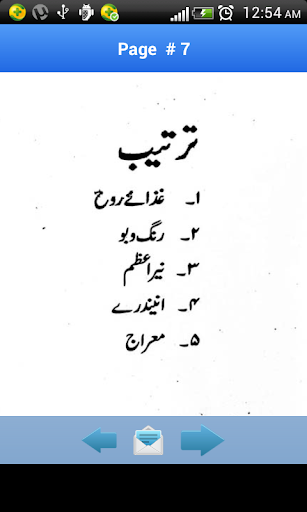 12:54 AM
Page # 7
ترتیب
۱۔ غذائے روح
۲۔ رنگ و بو
۳۔ نیراعظم
۴۔ انیندرے
۵۔ معراج